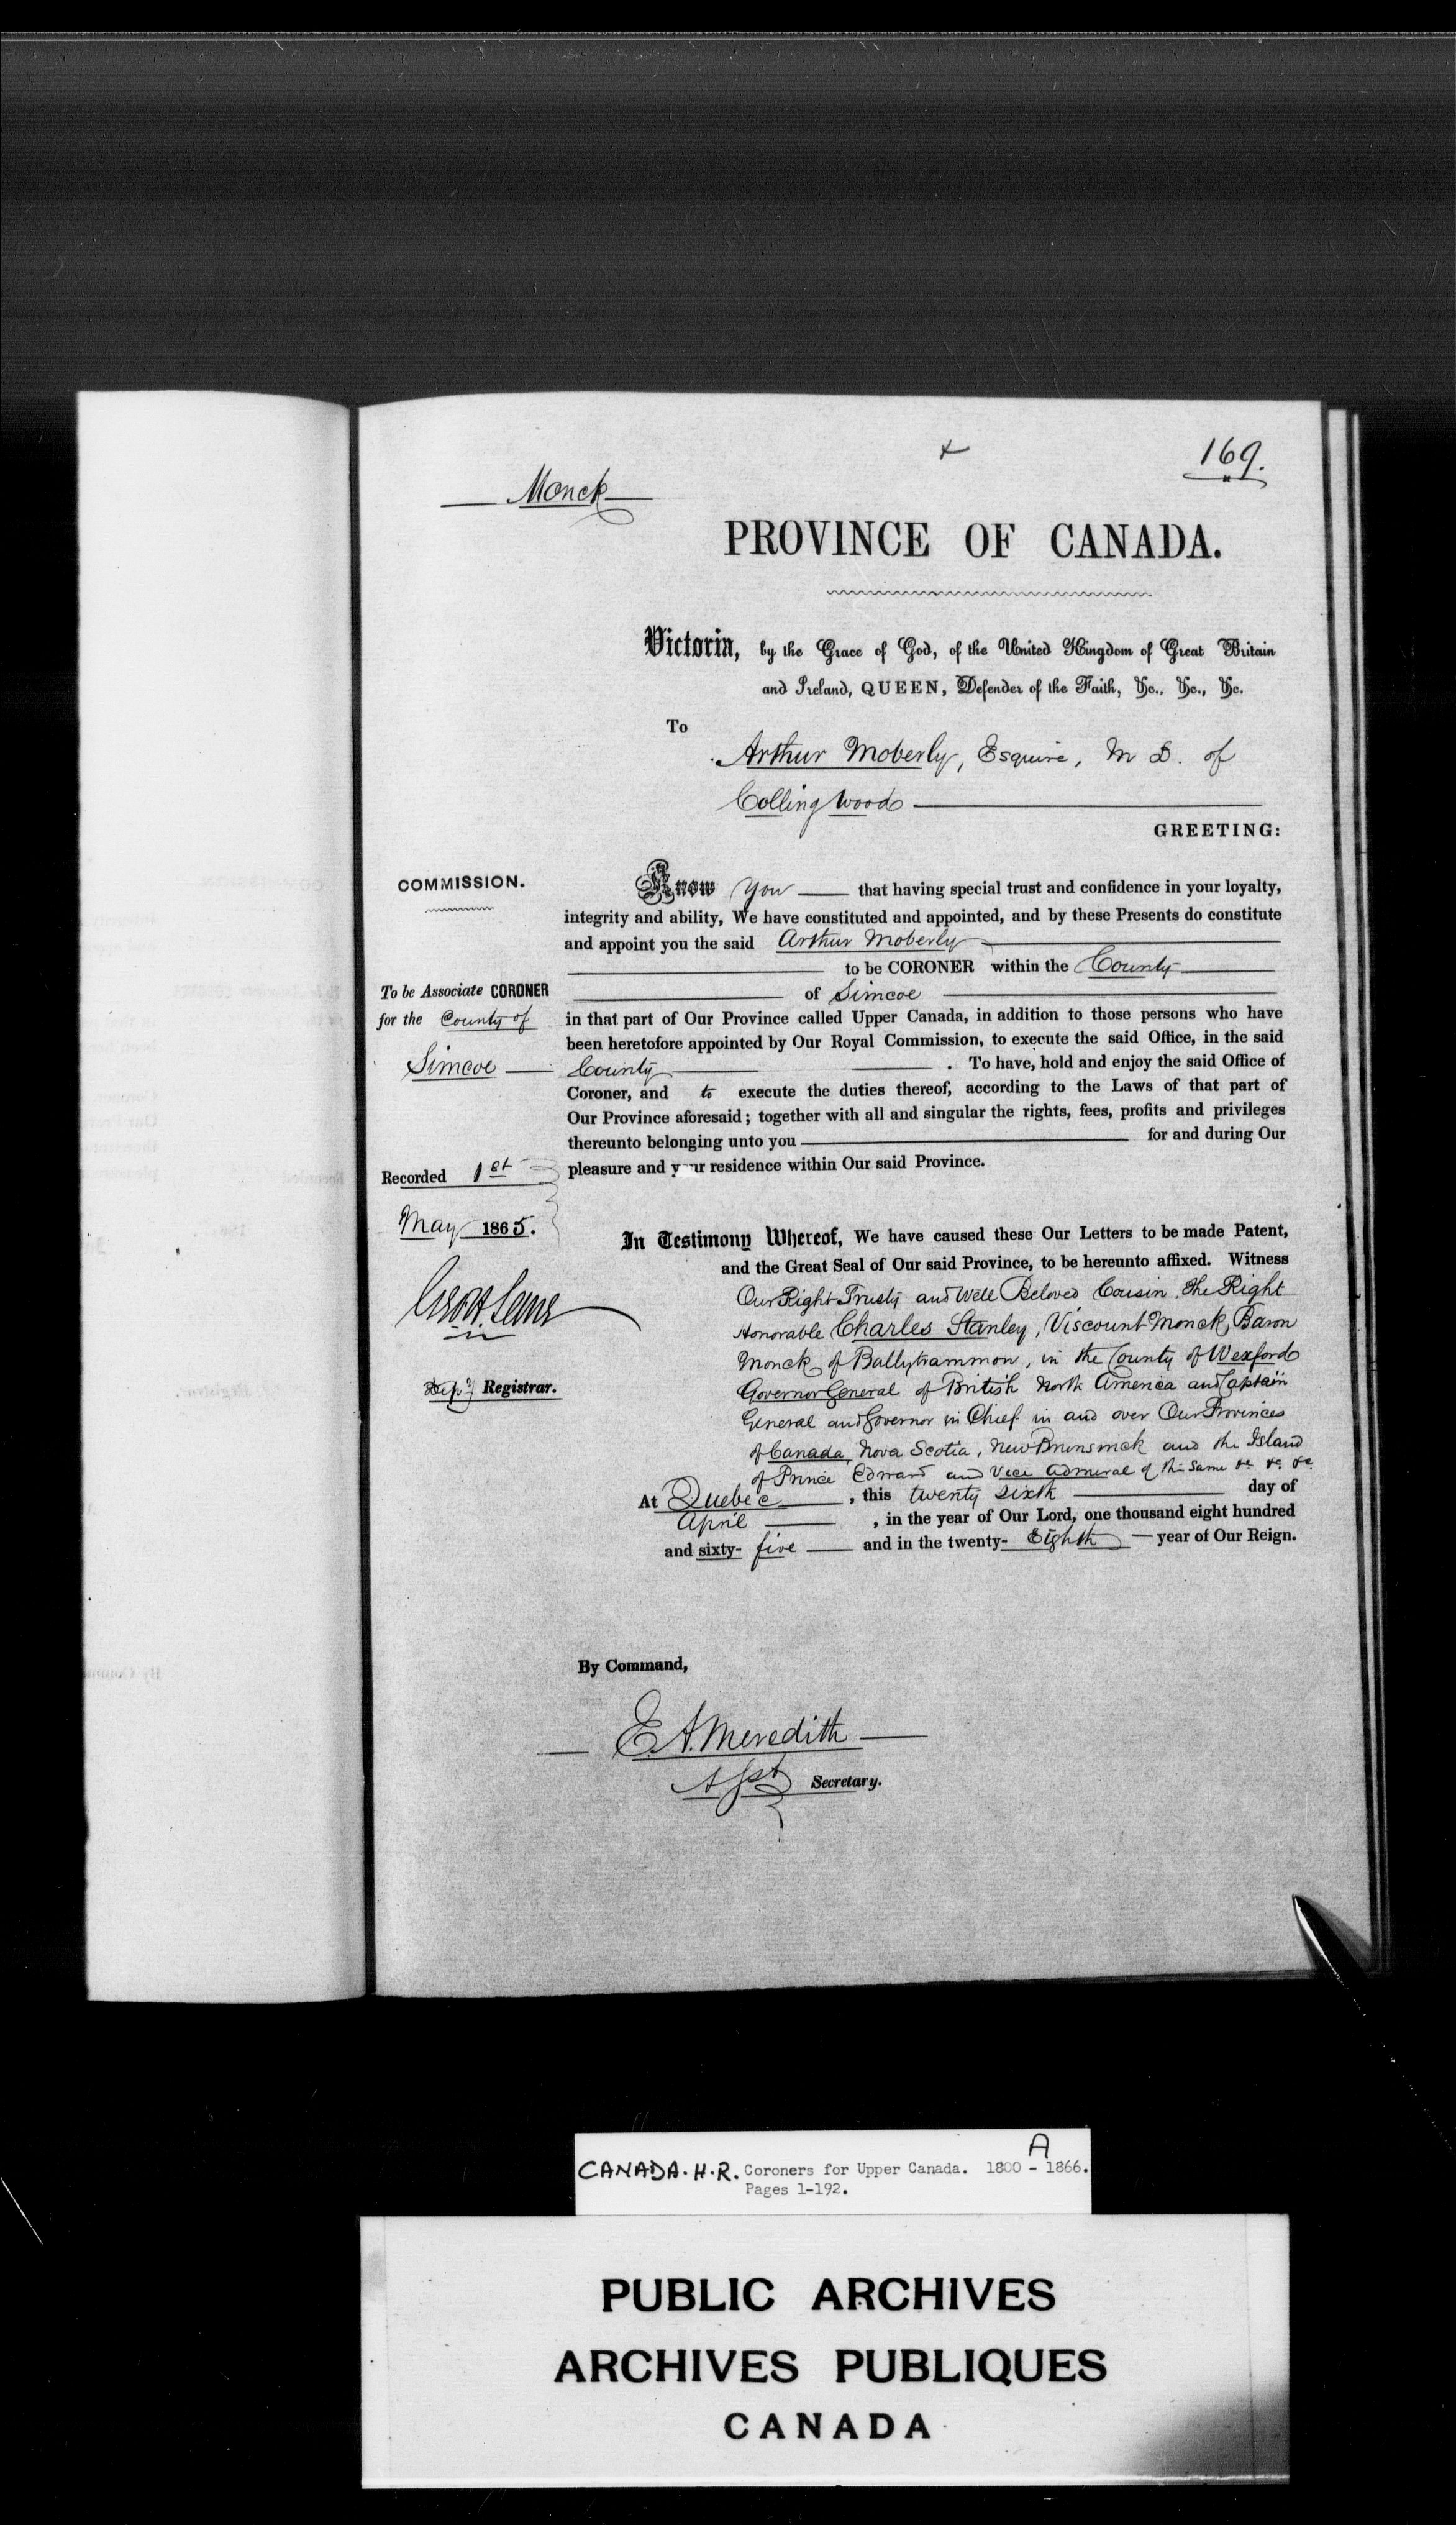 169.
Monck
PROVINCE OF CANADA.
Victoria, by the Grace of God, of the United Kingdom of Great Britain
and Ireland, QUEEN, Defender of the Faith, &c., &c., &c.
To
Arthur Moberly, Esquire, M D. of
Collingwood
GREETING:
COMMISSION.
Know you that having special trust and confidence in your loyalty,
integrity and ability, We have constituted and appointed, and by these Presents do constitute
and appoint you the said Arthur Moberly
to be CORONER within the County
of Simcoe
To be Associate CORONER
for the County of
Simcoe
in that part of Our Province called Upper Canada, in addition to those persons who have
been heretofore appointed by Our Royal Commission, to execute the said Office, in the said
County . To have, hold and enjoy the said Office of
Coroner, and to execute the duties thereof, according to the Laws of that part of
Our Province aforesaid; together with all and singular the rights, fees, profits and privileges
thereunto belonging unto you for and during Our
pleasure and your residence within Our said Province.
Recorded 1st
May 1865.
Depy Registrar.
In Testimony Whereof, We have caused these Our Letters to be made Patent,
and the Great Seal of Our said Province, to be hereunto affixed. Witness
Our Right Trusty and Well Beloved Cousin, The Right
Honorable Charles Stanley, Viscount Monck, Baron
Monck of Ballytrammon, in the County of Wexford
Governor General of British North America and Captain
General and Governor in Chief in and over Our Provinces
of Canada, Nova Scotia, New Brunswick and the Island
of Prince Edward and Vice Admiral of the Same &c. &c. &c.
At Quebec, this twenty sixth day of
April, in the year of Our Lord, one thousand eight hundred
and sixty-five and in the twenty-Eighth year of Our Reign.
By Command,
E. A. Meredith
Asst Secretary.
A
CANADA. H. R. Coroners for Upper Canada. 1800 - 1866.
Pages 1-192.
PUBLIC ARCHIVES
ARCHIVES PUBLIQUES
CANADA